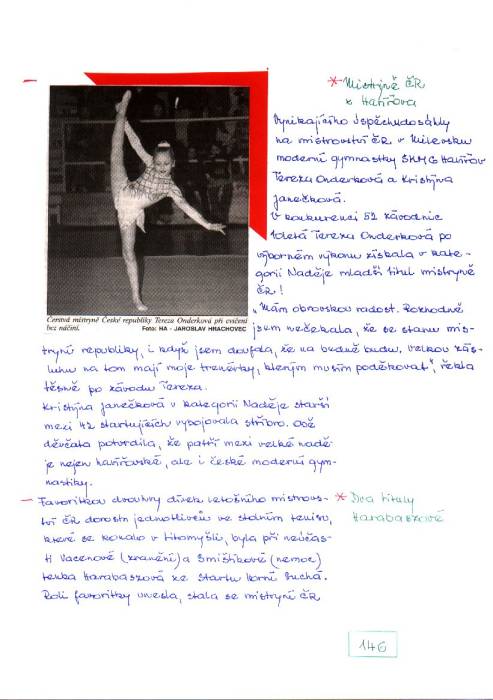 * Mistryně ČR
z Havířova
Vynikajícího úspěchu dosáhly
na mistrovství ČR v Milevsku
moderní gymnastky SKMG Havířov
Tereza Onderková a Kristýna
Janečková.
V konkurenci 52 závodnic
10letá Tereza Onderková po
výborném výkonu získala v kate-
gorii Naděje mladší titul mistryně
ČR!
"Mám obrovskou radost. Rozhodně
jsem nečekala, že se stanu mis-
Cerstvá mistryně České republiky Tereza Onderková při cvičení
bez náčiní. Foto: HA - JAROSLAV HRACHOVEC
tryní republiky, i když jsem doufala, že na bedně budu. Velkou zás-
luhu na tom mají moje trenérky, kterým musím poděkovat", řekla
těsně po závodu Tereza.
Kristýna Janečková v kategorii Naděje starší
mezi 42 startujícími vybojovala stříbro. Obě
děvčata potvrdila, že patří mezi velké nadě-
je nejen havířovské, ale i české moderní gym-
nastiky.
- Favoritkou dvouhry dívek letošního mistrovs-
tví ČR dorostu jednotlivců ve stolním tenisu,
které se konalo v Litomyšli, byla při neúčas-
ti Vacenové (zranění) a Smištíkové (nemoc)
Lenka Harabaszová ze Startu Horní Suchá.
Roli favoritky unesla, stala se mistryní ČR
* Dva tituly
Harabaszové
146